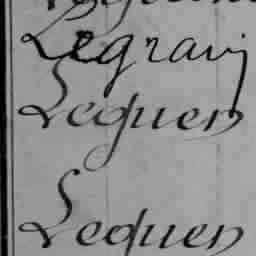 Legrav
Lequen
Lequen